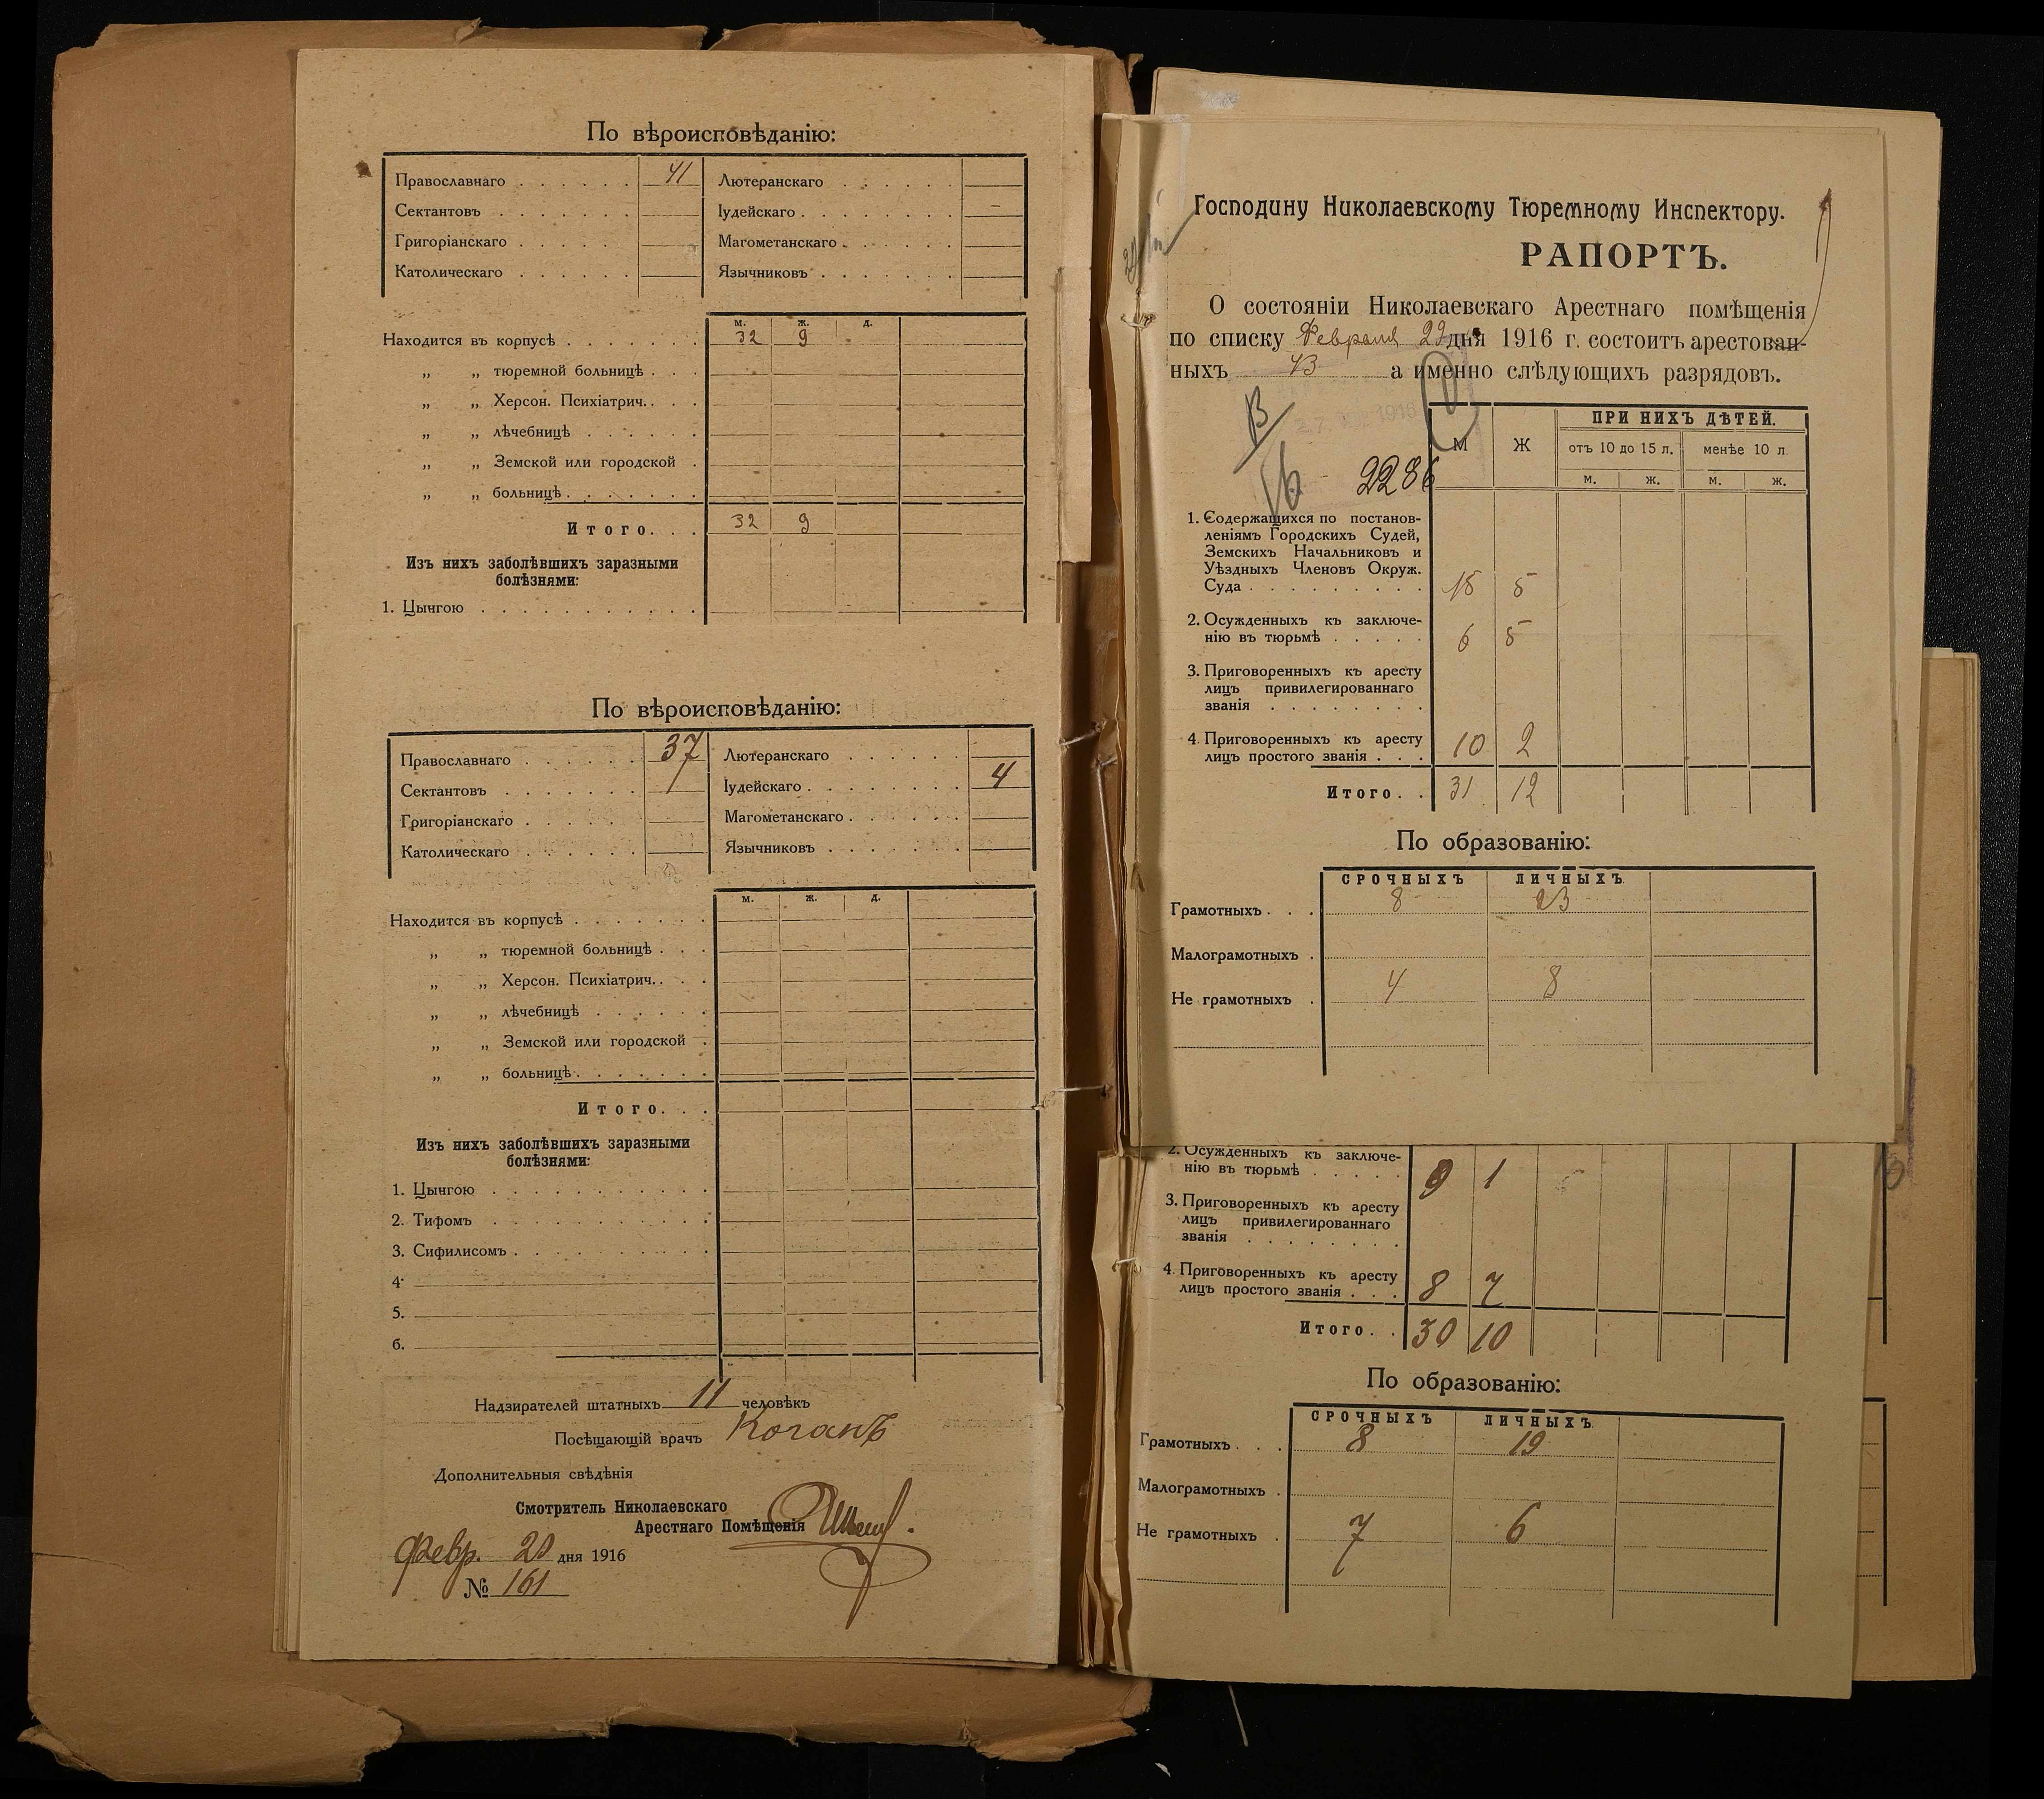 По вѣроисповѣданію:
Православнаго . . . . . . 41 Лютеранскаго . . . . . .
Сектантовъ . . . . . . . Іудейскаго . . . . . . . . –
Григоріанскаго . . . . . Магометанскаго . . . . . .
Католическаго . . . . . . Язычниковъ . . . . . . .
м. ж. д.
Находится въ корпусѣ . . . . . . . 32 9
„ „ тюремной больницѣ . . .
„ „ Херсон. Психіатрич. . . .
„ „ лѣчебницѣ . . . . . .
„ „ Земской или городской .
„ „ больницѣ . . . . . . .
Итого. . . 32 9
Изъ нихъ заболѣвшихъ заразными
болѣзнями:
1. Цынгою . . . . . . . . . . .
По вѣроисповѣданію:
Православнаго . . . . . . 37 Лютеранскаго . . . . . .
Сектантовъ . . . . . . . Іудейскаго . . . . . . . . 4
Григоріанскаго . . . . . Магометанскаго . . . . . .
Католическаго . . . . . . Язычниковъ . . . . . . .
м. ж. д.
Находится въ корпусѣ . . . . . . .
„ „ тюремной больницѣ . . .
„ „ Херсон. Психіатрич. . . .
„ „ лѣчебницѣ . . . . . .
„ „ Земской или городской .
„ „ больницѣ . . . . . . .
Итого. . .
Изъ нихъ заболѣвшихъ заразными
болѣзнями:
1. Цынгою . . . . . . . . . . .
2. Тифомъ . . . . . . . . . . .
3. Сифилисомъ . . . . . . . . . .
4.
5.
6.
Надзирателей штатныхъ 11 человѣкъ
Посѣщающій врачъ Коганъ
Дополнительныя свѣдѣнія
Смотритель Николаевскаго
Арестнаго Помѣщенія
Февр. 20 дня 1916
№ 161
Господину Николаевскому Тюремному Инспектору.
РАПОРТЪ.
О состояніи Николаевскаго Арестнаго помѣщенія
по списку Февраля 29 дня 1916 г. состоитъ арестован-
ныхъ 43 а именно слѣдующихъ разрядовъ.
1916
2286
М Ж ПРИ НИХЪ ДѢТЕЙ.
отъ 10 до 15 л. менѣе 10 л.
м. ж. м. ж.
1. Содержащихся по постанов-
леніямъ Городскихъ Судей,
Земскихъ Начальниковъ и
Уѣздныхъ Членовъ Окруж.
Суда . . . . . . . . . 15 5
2. Осужденныхъ къ заключе-
нію въ тюрьмѣ . . . . . 6 5
3. Приговоренныхъ къ аресту
лицъ привилегированнаго
званія . . . . . . . .
4. Приговоренныхъ къ аресту
лицъ простого званія . . . 10 2
Итого. . 31 12
По образованію:
СРОЧНЫХЪ ЛИЧНЫХЪ
Грамотныхъ . . . 8 23
Малограмотныхъ .
Не грамотныхъ . 4 8
2. Осужденныхъ къ заключе-
нію въ тюрьмѣ . . . . . 9 1
3. Приговоренныхъ къ аресту
лицъ привилегированнаго
званія . . . . . . . .
4. Приговоренныхъ къ аресту
лицъ простого званія . . . 8 7
Итого. . 30 10
По образованію:
СРОЧНЫХЪ ЛИЧНЫХЪ
Грамотныхъ . . . 8 19
Малограмотныхъ .
Не грамотныхъ . 7 6